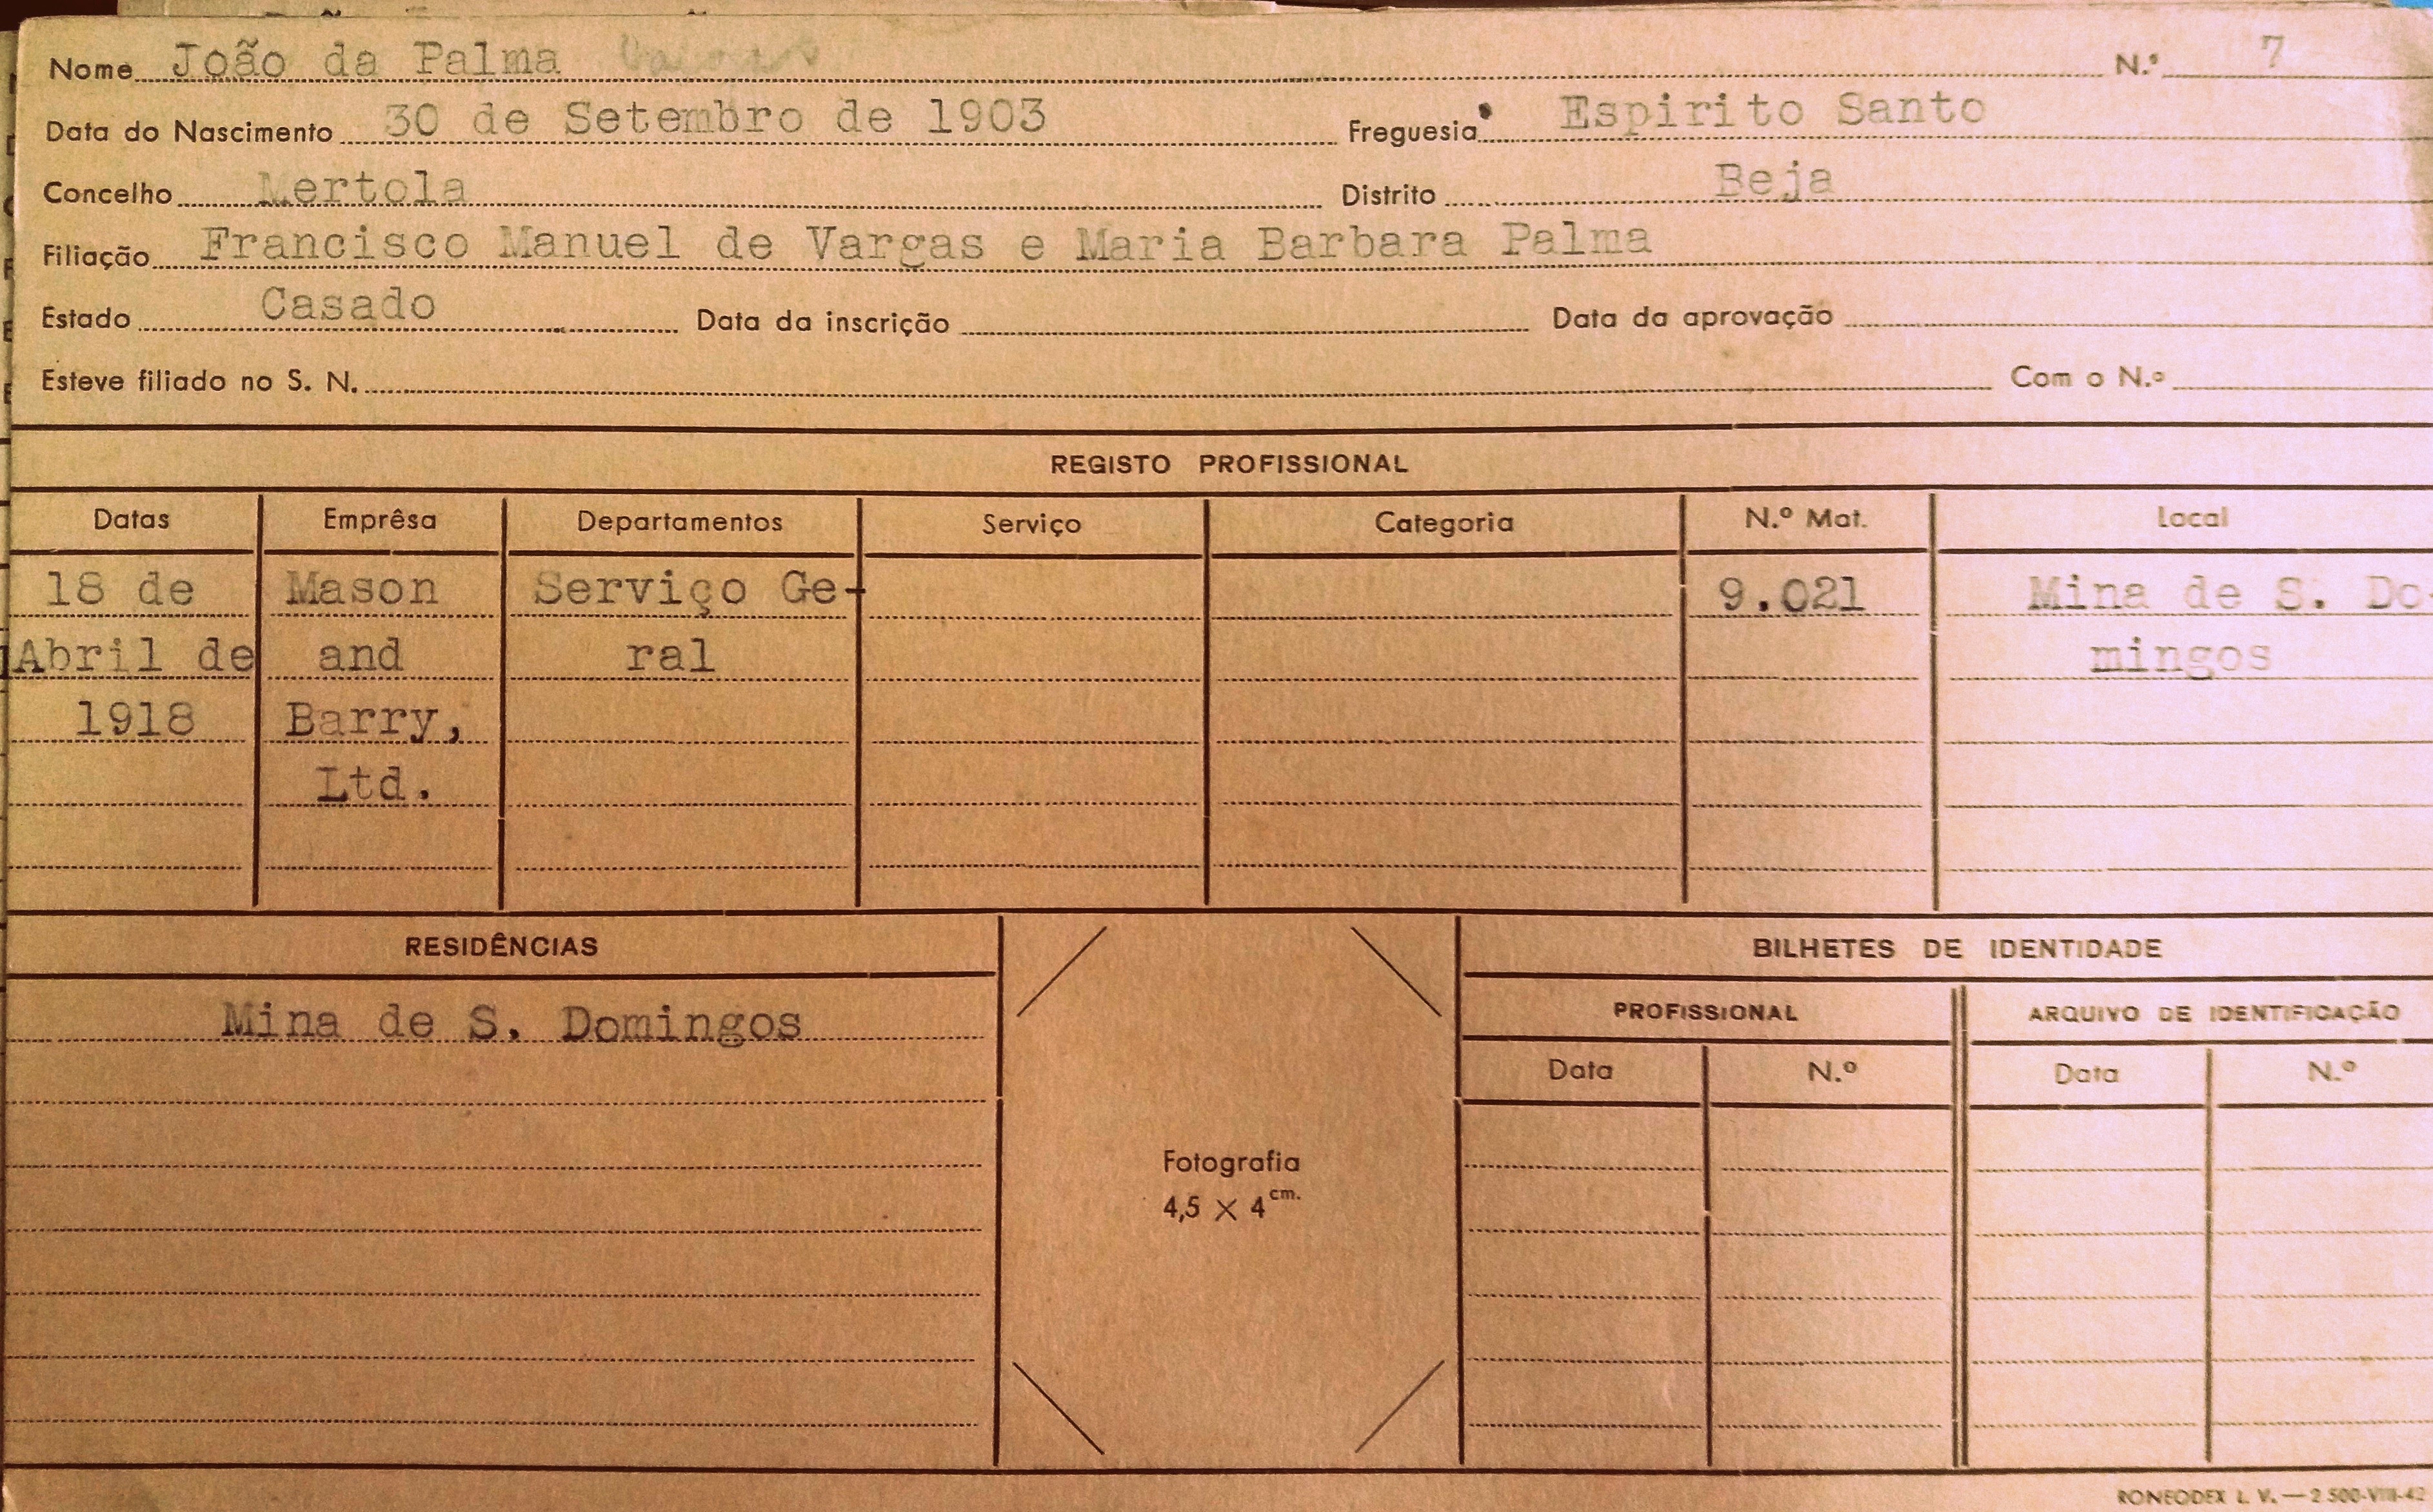 Nome João da Palma N.º 7
Data do Nascimento 30 de Setembro de 1903 Freguesia Espirito Santo
Concelho Mertola Distrito Beja
Filiação Francisco Manuel de Vargas e Maria Barbara Palma
Estado Casado Data da inscrição Data da aprovação
Esteve filiado no S. N. Com o N.º
REGISTO PROFISSIONAL
Datas Emprêsa Departamentos Serviço Categoria N.º Mat. Local
18 de Mason Serviço Ge- 9.021 Mina de S. Do
Abril de and ral mingos
1918 Barry,
Ltd.
RESIDÊNCIAS BILHETES DE IDENTIDADE
Mina de S. Domingos PROFISSIONAL ARQUIVO DE IDENTIFICAÇÃO
Data N.º Data N.º
Fotografia
4,5 × 4 cm.
RONEODEX L. V. — 2.500-VIII-42